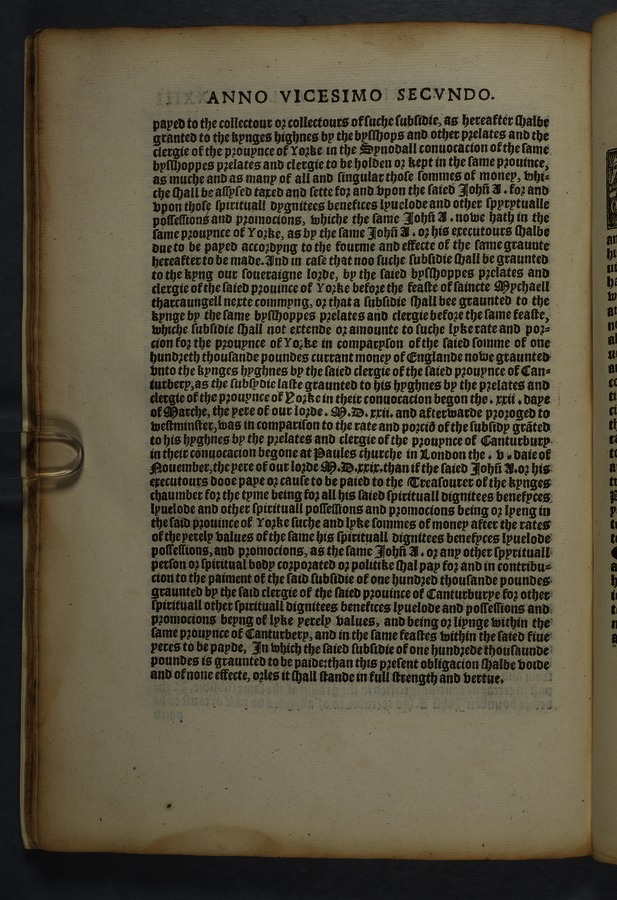 ANNO VICESIMO SECVNDO.
payed to the collectour or collectours of suche subsidie, as hereafter shalbe
granted to the kynges highnes by the bysshops and other prelates and the
clergie of the prouynce of Yorke in the Synodall conuocacion of the same
bysshoppes prelates and clergie to be holden or kept in the same prouince,
as muche and as many of all and singular those sommes of money, whi-
che shall be assysed taxed and sette for and vpon the saied Johñ A. for and
vpon those spirituall dygnitees benefices lyuelode and other spyrytualle
possessions and promocions, whiche the same Johñ A. nowe hath in the
same prouynce of Yorke, as by the same Johñ A. or his executours shalbe
due to be payed accordyng to the fourme and effecte of the same graunte
hereafter to be made. And in case that noo suche subsidie shall be graunted
to the kyng our soueraigne lorde, by the saied bysshoppes prelates and
clergie of the saied prouince of Yorke before the feaste of saincte Mychaell
tharcaungell nexte commyng, or that a subsidie shall bee graunted to the
kynge by the same bysshoppes prelates and clergie before the same feaste,
whiche subsidie shall not extende or amounte to suche lyke rate and por-
cion for the prouynce of Yorke in comparyson of the saied somme of one
hundreth thousande poundes currant money of Englande nowe graunted
vnto the kynges hyghnes by the saied clergie of the saied prouynce of Can-
turbery, as the subsydie laste graunted to his hyghnes by the prelates and
clergie of the prouynce of Yorke in their conuocacion begon the .xxii. daye
of Marche, the yere of our lorde .M.D.xxii. and afterwarde proroged to
westminster, was in comparison to the rate and porciō of the subsidy grāted
to his hyghnes by the prelates and clergie of the prouynce of Canturbury
in their conuocacion begone at Paules churche in London the .v. daie of
Nouember, the yere of our lorde M.D.xxix. than if the saied Johñ A. or his
executours dooe paye or cause to be paied to the Treasourer of the kynges
chaumber for the tyme being for all his saied spirituall dignitees benefyces
lyuelode and other spirituall possessions and promocions being or lyeng in
the said prouince of Yorke suche and lyke sommes of money after the rates
of the yerely values of the same his spirituall dignitees benefyces lyuelode
possessions, and promocions, as the same Johñ A. or any other spyrituall
person or spiritual body corporated or politike shal pay for and in contribu-
cion to the paiment of the said subsidie of one hundred thousande poundes
graunted by the said clergie of the saied prouince of Canturburye for other
spirituall other spirituall dignitees benefices lyuelode and possessions and
promocions beyng of lyke yerely values, and being or liynge within the
same prouynce of Canturbery, and in the same feastes within the saied fiue
yeres to be payde, In which the saied subsidie of one hundrede thousaunde
poundes is graunted to be paide: than this present obligacion shalbe voide
and of none effecte, orles it shall stande in full strength and vertue.